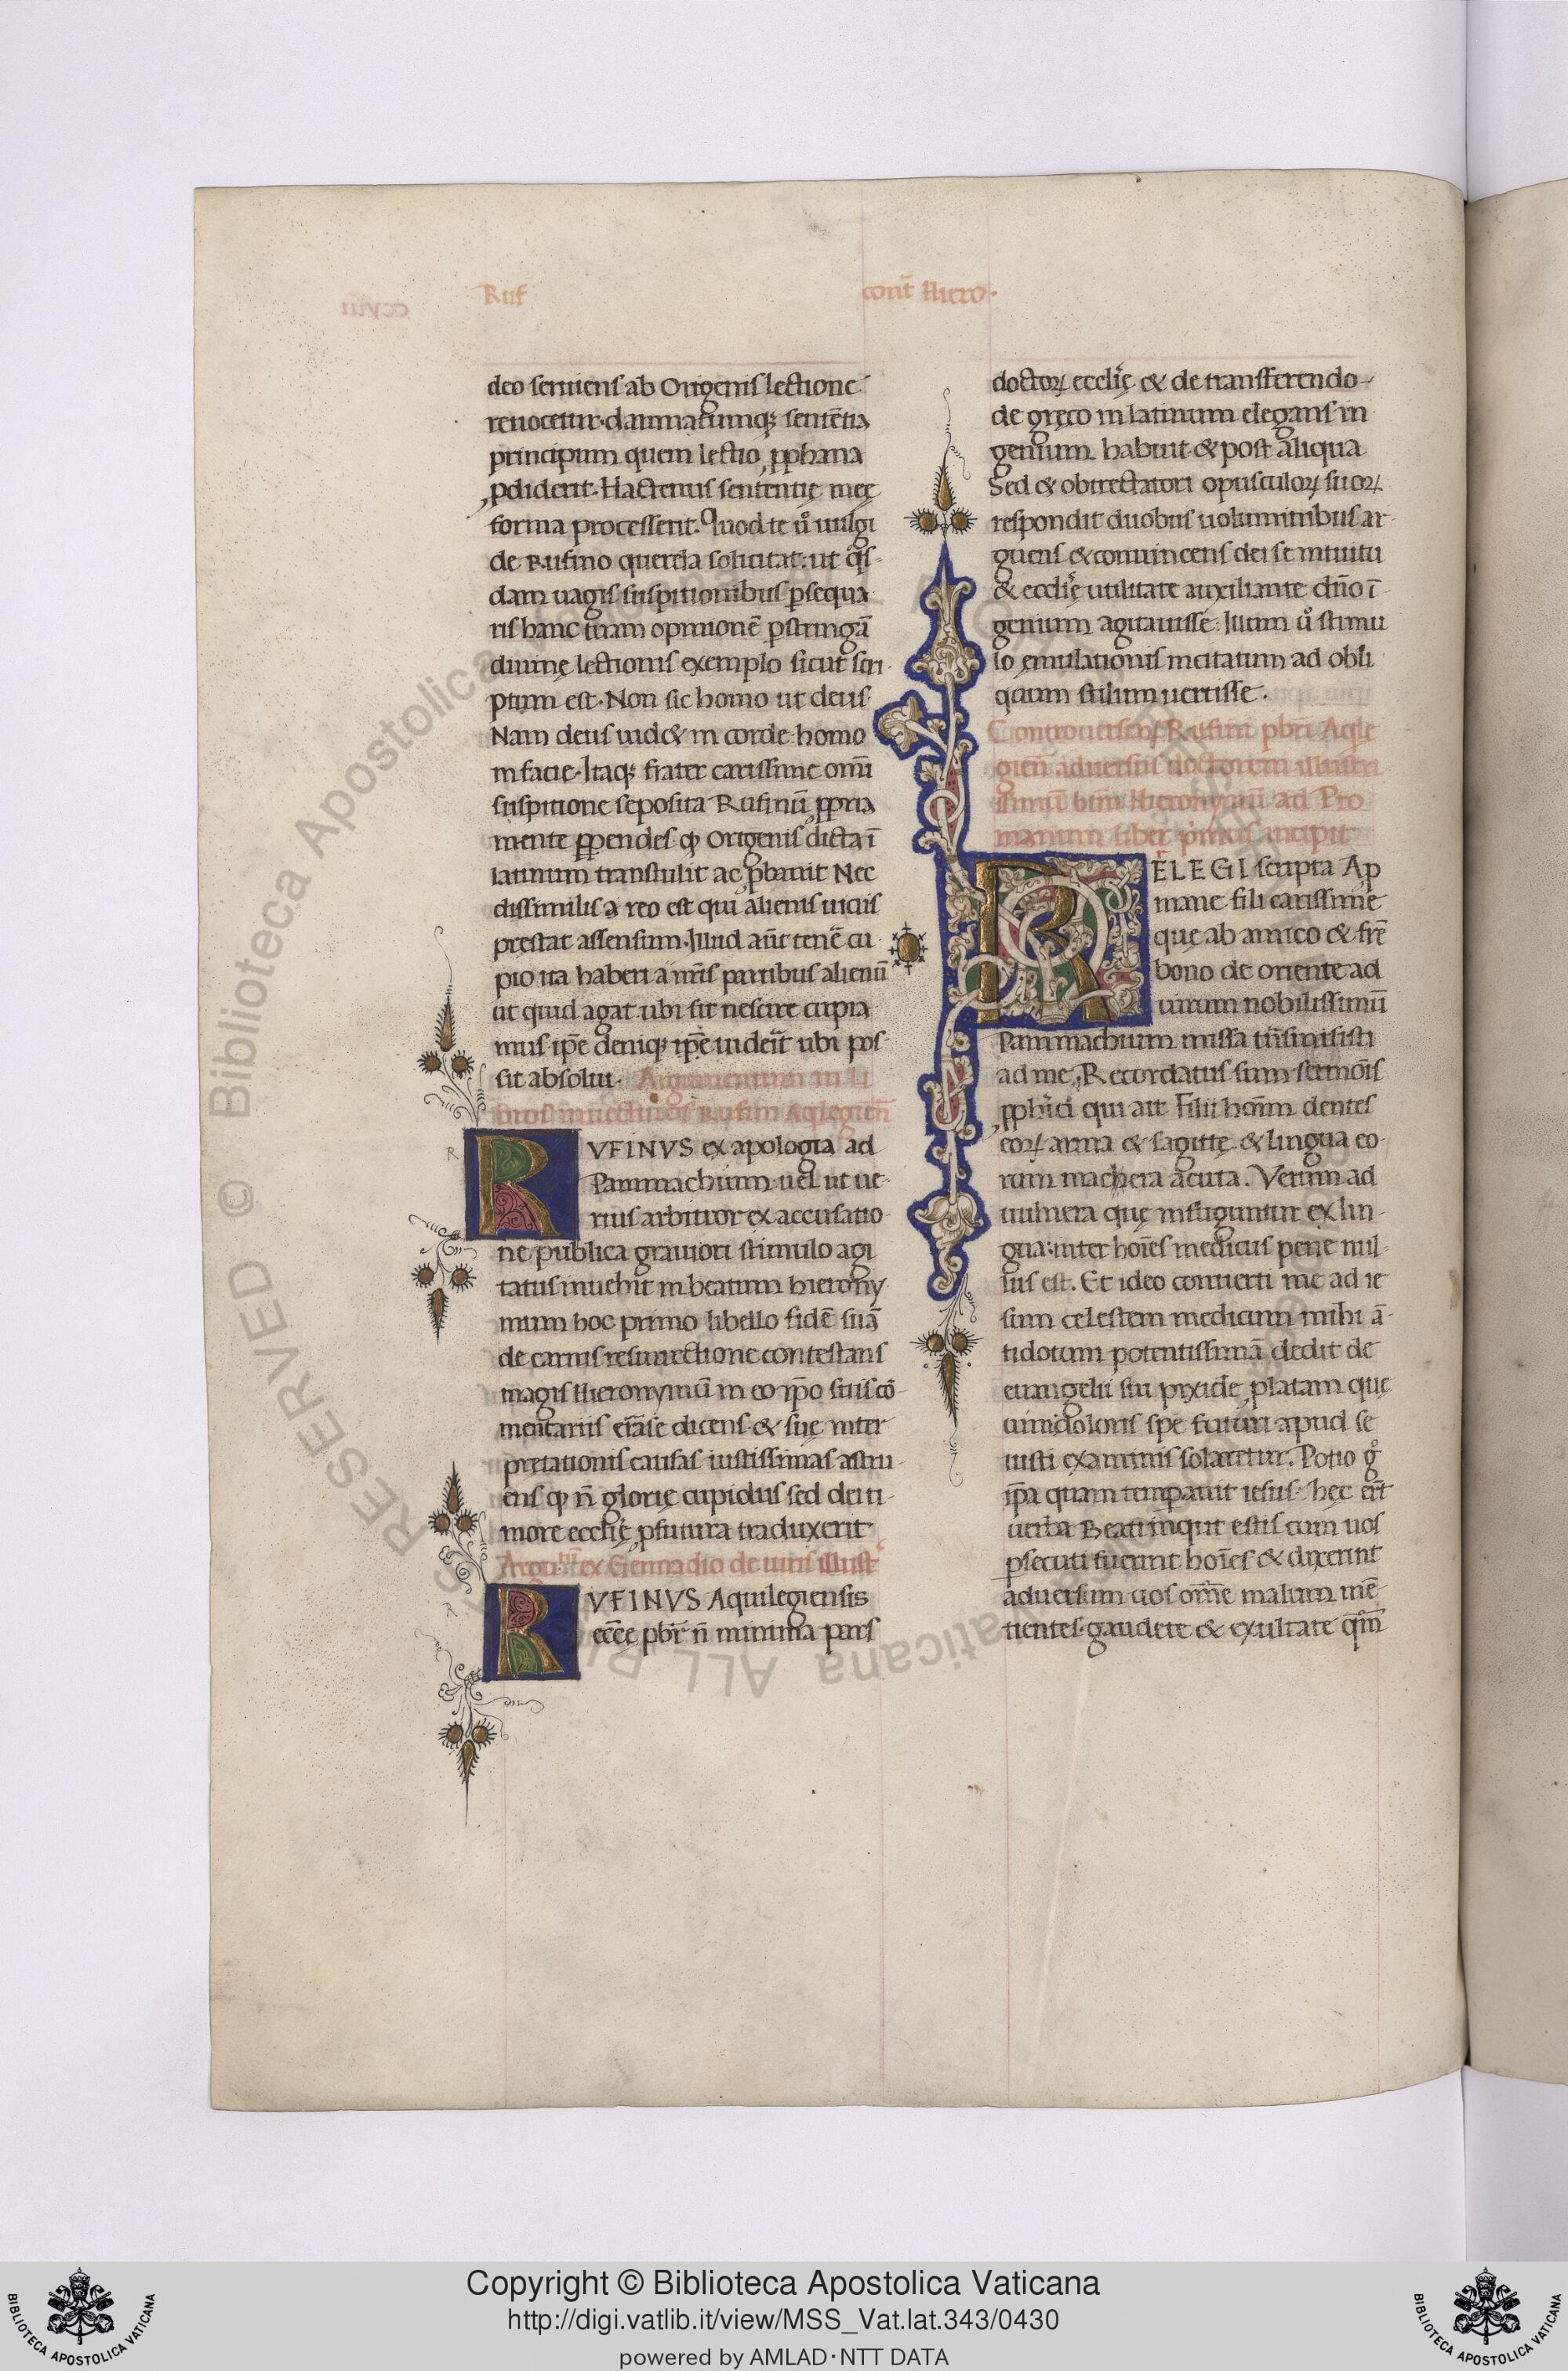 Ruf
cont̄ Hiero·
deo seruiens ab Origenis lectione
reuocetur·damnatumq; sentētia
principum quem lectio ꝓphana
ꝓdiderit·Hactenus sententię meę
forma processerit·Quod te uͦ uulgi
de Rufino querela solicitat: ut q̊s
dam uagis suspitionibus ꝑsequa
ris hanc tuam opinionē ꝑstringā
diuinę lectionis exemplo sicut scri
ptum est·Non sic homo ut deus
Nam deus uid& in corde·homo
in facie·Itaq; frater carissime omī
suspitione seposita Rufinū ꝓpria
mente ꝓpendes ꝙ Origenis dicta ī
latinum transtulit ac ꝓbauit Nec
dissimilis a reo est qui alienis uiciis
pręstat assensum·Illud aūt tenē cu
pio ita haberi a nr̄is partibus alienū
ut quid agat ubi sit nescire cupia
mus·ip̄e deniq; ip̄e uideīt ubi pos
sit absolui· Argumentum in li
bros inuectiuos Rufini Aqlegien̄
RVFINVS ex apologia ad
Pammachium·uel ut ue
rius arbitror ex accusatio
ne publica grauiori stimulo agi
tatus inuehit in beatum hierony
mum hoc primo libello fidē suā
de carnis resurrectione contestans
magis Hieronymū in eo ip̄o suis cō
mentariis er̄ase dicens·& suę inter
pretationis causas iustissimas astru
ens ꝙ n̄ glorię cupidus sed dei ti
more ecclię ꝓfutura traduxerit
Argum̄t ex Gennadio de uiris illust
RVFINVS Aquilegiensis
ecc̄ę pbr̄ n̄ minima pars
doctoꝝ ecclię & de transferendo
de gręco in latinum elegans in
genium habuit·& post aliqua
Sed & obtrectatori opusculoꝝ suoꝝ
respondit duobus uoluminibus ar
guens & conuincens dei se intuitu
& ecclię utilitate auxiliante dn̄o ī
genium agitauisse: Illum uͦ stimu
lo ęmulationis incitatum ad obli
quum stilum uertisse.
Controuersen̄ Rufini pbr̄i Aqle
gien̄ aduersus doctorem illustri
ssimū btm̄ Hieronymū ad Pro
manum liber primus incipit
RELEGI scripta Ap
mane fili carissime
quę ab amico & fr̄e
bono de oriente ad
uirum nobilissimū
Pammachium missa trn̄smisisti
ad me, Recordatus sum sermōis
ꝓph̄ici qui ait Filii hoīm dentes
eoꝝ arma & sagittę·& lingua eo
rum machera acuta. Verum ad
uulnera quę infiguntur ex lin
gua:inter hoīes medicus pene nul
lus est. Et ideo conuerti me ad ie
sum celestem medicum mihi ā
tidotum potentissimā dedit de
euangelii sui pixide ꝓlatam que
uim doloris spe futuri apud se
iusti examinis solaretur. Potio g̊
ip̄a quam temꝑauit iesus hęc er̄t
uerba Beati inquit estis cum uos
ꝑsecuti fuerint hoīes & dixerint
aduersum uos om̄ne malum mē
tientes·gaudete & exultate qm̄
Copyright © Biblioteca Apostolica Vaticana
http://digi.vatlib.it/view/MSS_Vat.lat.343/0430
powered by AMLAD·NTT DATA
BIBLIOTECA APOSTOLICA VATICANA
BIBLIOTECA APOSTOLICA VATICANA